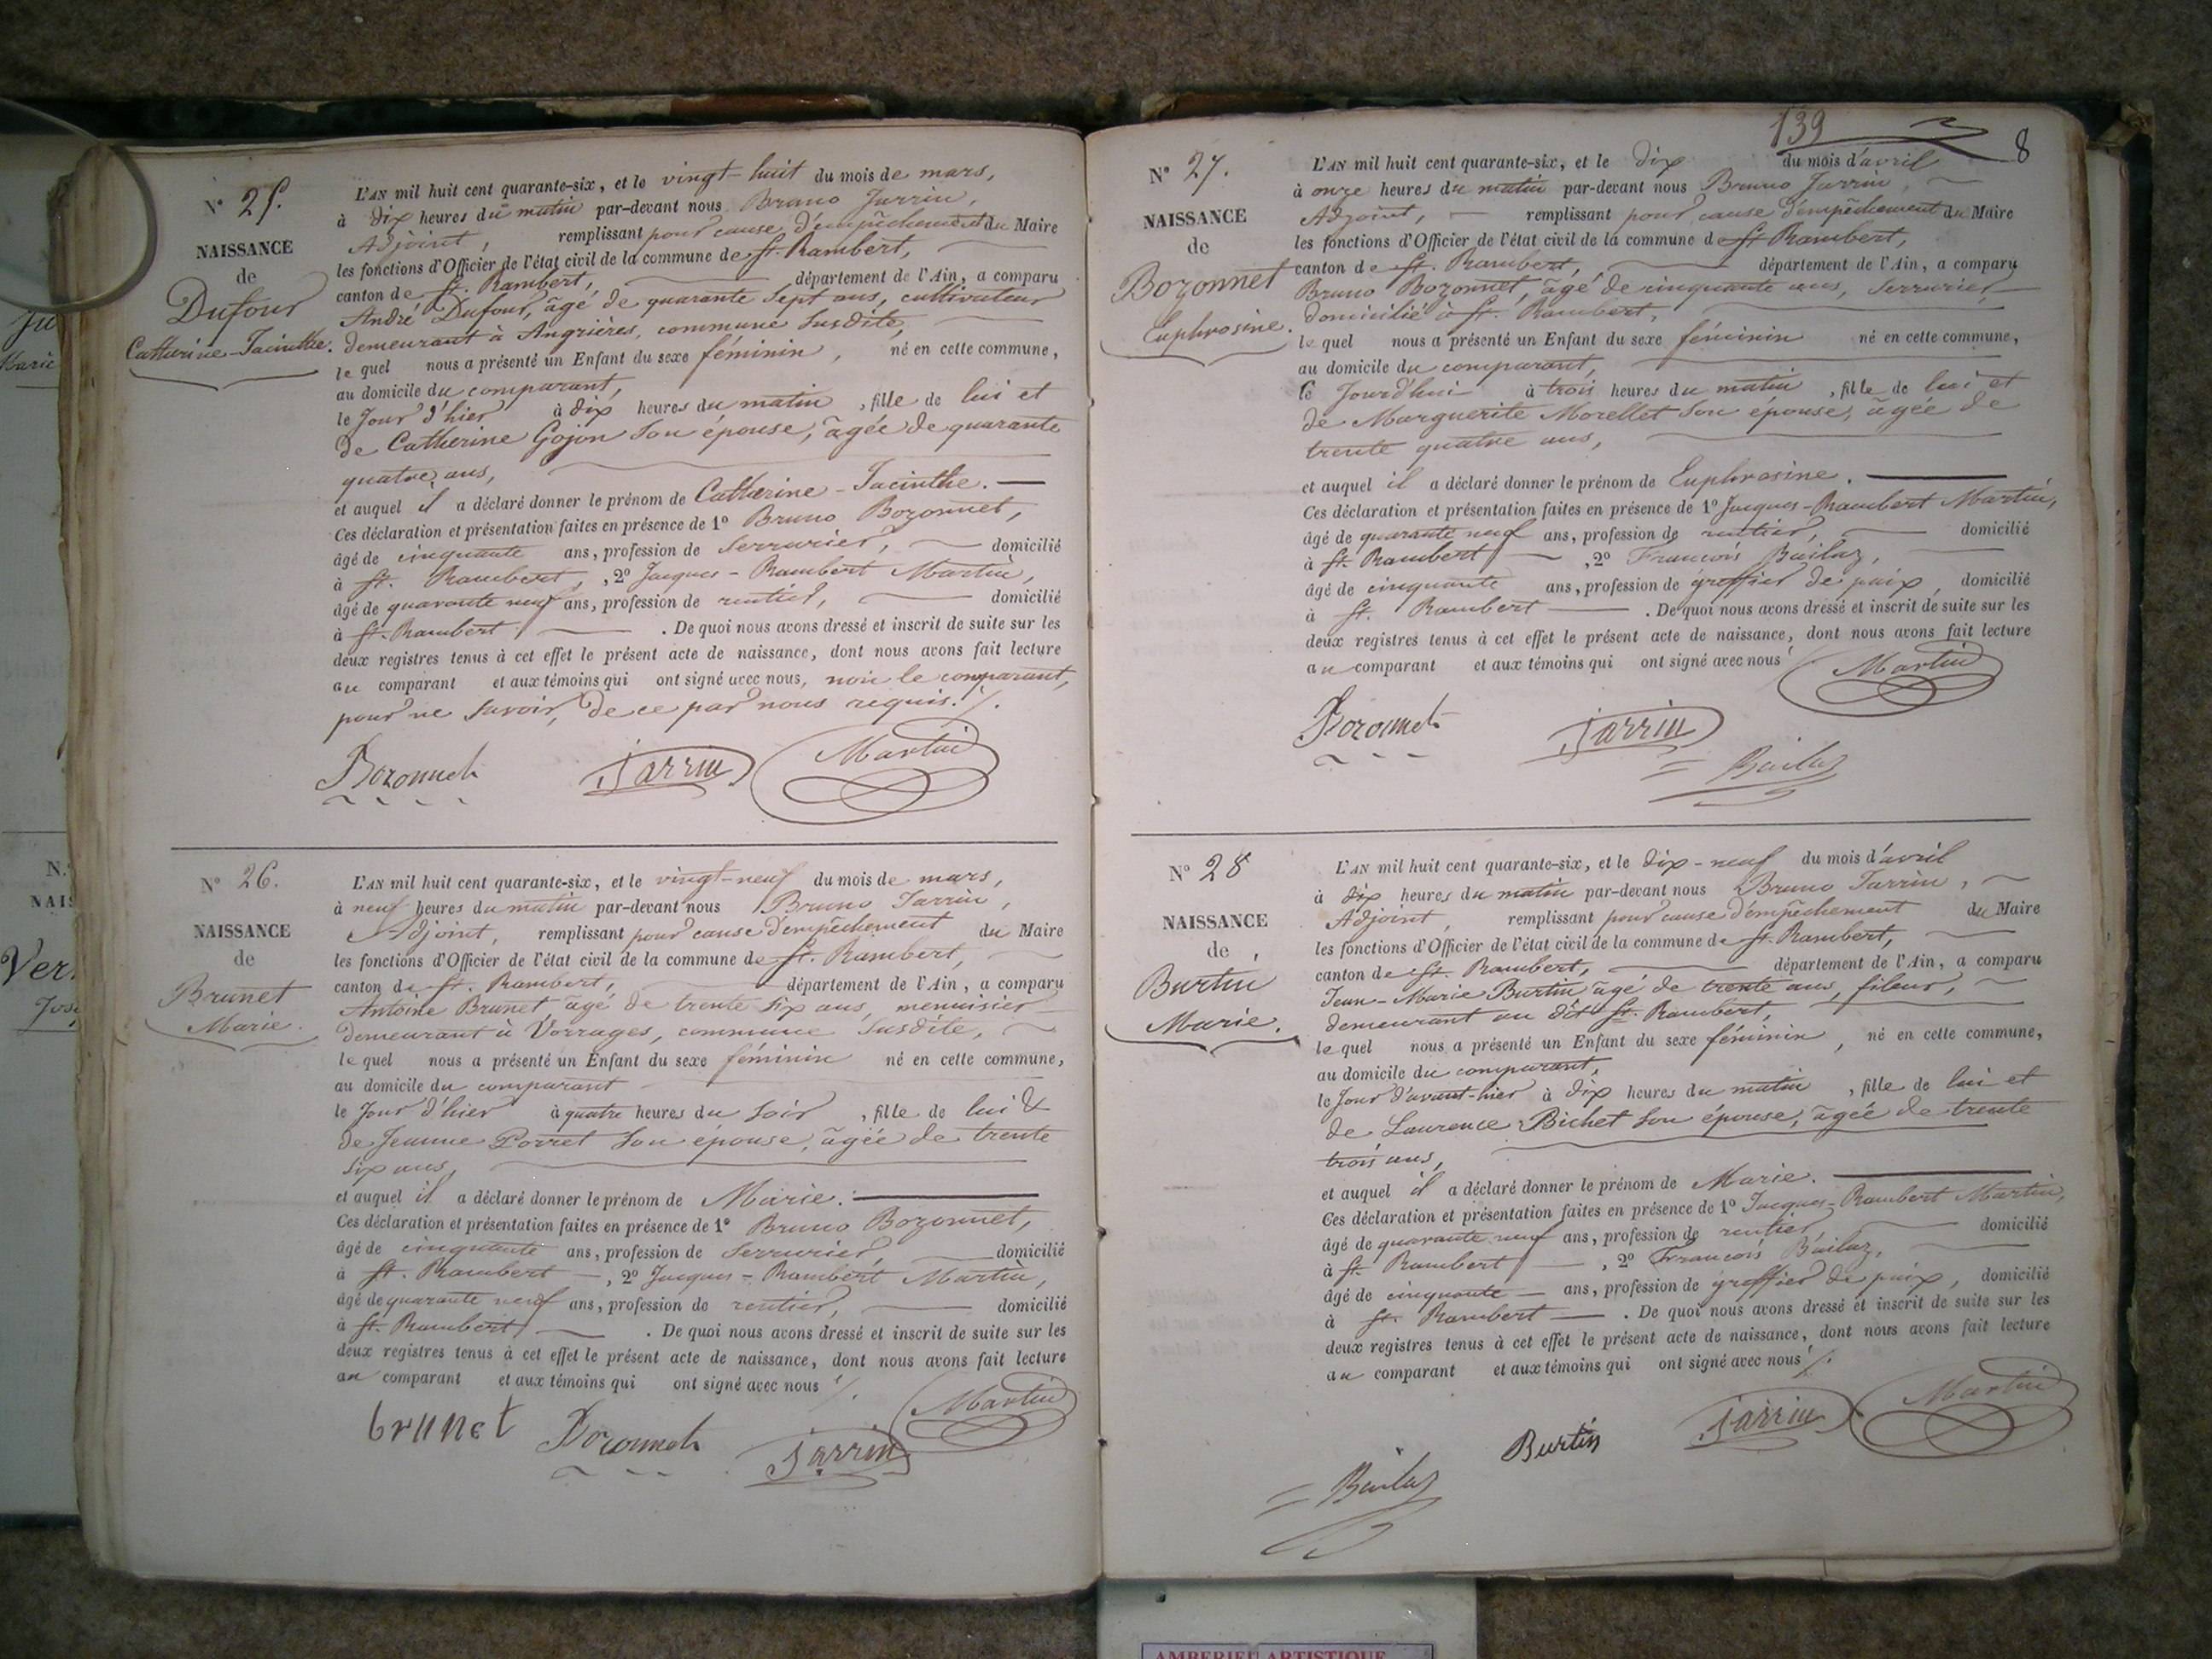 N° 25.
NAISSANCE
de
Dufour
Catherine-Jacinthe.
L'AN mil huit cent quarante-six, et le vingt-huit du mois de mars,
à dix heures du matin par-devant nous Bruno Jarrin,
Adjoint, remplissant pour cause d'empêchement du Maire
les fonctions d'Officier de l'état civil de la commune de St. Rambert,
canton de St. Rambert, département de l'Ain, a comparu
André Dufour, âgé de quarante sept ans, cultivateur
demeurant à Angrières, commune susdite,
lequel nous a présenté un Enfant du sexe féminin, né en cette commune,
au domicile du comparant,
le jour d'hier à dix heures du matin, fille de lui et
de Catherine Gojon son épouse, âgée de quarante
quatre ans,
et auquel il a déclaré donner le prénom de Catherine-Jacinthe.
Ces déclaration et présentation faites en présence de 1° Bruno Bozonnet,
âgé de cinquante ans, profession de serrurier, domicilié
à St. Rambert, , 2° Jacques-Rambert Martin,
âgé de quarante neuf ans, profession de rentier, domicilié
à St. Rambert . De quoi nous avons dressé et inscrit de suite sur les
deux registres tenus à cet effet le présent acte de naissance, dont nous avons fait lecture
au comparant et aux témoins qui ont signé avec nous, non le comparant,
pour ne savoir, de ce par nous requis ./.
Bozonnet Jarrin Martin
N° 26.
NAISSANCE
de
Brunet
Marie.
L'AN mil huit cent quarante-six, et le vingt-neuf du mois de mars,
à neuf heures du matin par-devant nous Bruno Jarrin,
Adjoint, remplissant pour cause d'empêchement du Maire
les fonctions d'Officier de l'état civil de la commune de St. Rambert,
canton de St. Rambert, département de l'Ain, a comparu
Antoine Brunet, âgé de trente six ans, menuisier
demeurant à Vorrages, commune susdite,
lequel nous a présenté un Enfant du sexe féminin né en cette commune,
au domicile du comparant
le jour d'hier à quatre heures du soir, fille de lui &
de Jeanne Porret son épouse, âgée de trente
six ans,
et auquel il a déclaré donner le prénom de Marie.
Ces déclaration et présentation faites en présence de 1° Bruno Bozonnet,
âgé de cinquante ans, profession de serrurier domicilié
à St. Rambert, 2° Jacques-Rambert Martin,
âgé de quarante neuf ans, profession de rentier, domicilié
à St. Rambert . De quoi nous avons dressé et inscrit de suite sur les
deux registres tenus à cet effet le présent acte de naissance, dont nous avons fait lecture
au comparant et aux témoins qui ont signé avec nous ./.
brunet Bozonnet Jarrin Martin
139
8
N° 27.
NAISSANCE
de
Bozonnet
Euphrosine.
L'AN mil huit cent quarante-six, et le dix du mois d'avril
à onze heures du matin par-devant nous Bruno Jarrin,
Adjoint, remplissant pour cause d'empêchement du Maire
les fonctions d'Officier de l'état civil de la commune de St. Rambert,
canton de St. Rambert, département de l'Ain, a comparu
Bruno Bozonnet, âgé de cinquante ans, serrurier
domicilié à St. Rambert,
lequel nous a présenté un Enfant du sexe féminin né en cette commune,
au domicile du comparant,
le jourd'hui à trois heures du matin, fille de lui et
de Marguerite Morellet son épouse, âgée de
trente quatre ans,
et auquel il a déclaré donner le prénom de Euphrosine.
Ces déclaration et présentation faites en présence de 1° Jacques-Rambert Martin,
âgé de quarante neuf ans, profession de rentier, domicilié
à St. Rambert , 2° François Bailaz,
âgé de cinquante ans, profession de greffier de paix, domicilié
à St. Rambert . De quoi nous avons dressé et inscrit de suite sur les
deux registres tenus à cet effet le présent acte de naissance, dont nous avons fait lecture
au comparant et aux témoins qui ont signé avec nous ./. Martin
Bozonnet Jarrin
Bailaz
N° 28
NAISSANCE
de
Burtin
Marie.
L'AN mil huit cent quarante-six, et le dix-neuf du mois d'avril
à dix heures du matin par-devant nous Bruno Jarrin,
Adjoint, remplissant pour cause d'empêchement du Maire
les fonctions d'Officier de l'état civil de la commune de St. Rambert,
canton de St. Rambert, département de l'Ain, a comparu
Jean-Marie Burtin âgé de trente ans, fileur,
demeurant au dit St. Rambert,
lequel nous a présenté un Enfant du sexe féminin, né en cette commune,
au domicile du comparant,
le jour d'avant-hier à dix heures du matin, fille de lui et
de Laurence Bichet son épouse, âgée de trente
trois ans,
et auquel il a déclaré donner le prénom de Marie.
Ces déclaration et présentation faites en présence de 1° Jacques-Rambert Martin,
âgé de quarante neuf ans, profession de rentier, domicilié
à St. Rambert , 2° François Bailaz,
âgé de cinquante ans, profession de greffier de paix, domicilié
à St. Rambert . De quoi nous avons dressé et inscrit de suite sur les
deux registres tenus à cet effet le présent acte de naissance, dont nous avons fait lecture
au comparant et aux témoins qui ont signé avec nous ./.
Burtin Jarrin Martin
Bailaz
AMBERIEU ARTISTIQUE